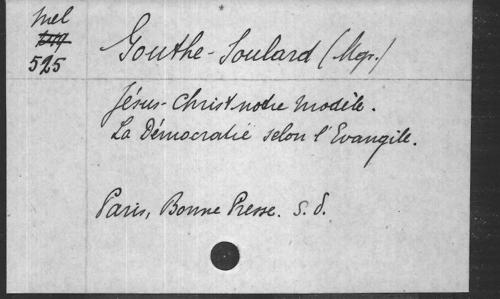 mel
525
Gouthe-Soulard (Mgr.)
Jésus-Christ notre modèle.
La Démocratie selon l'Evangile.
Paris, Bonne Presse. s. d.